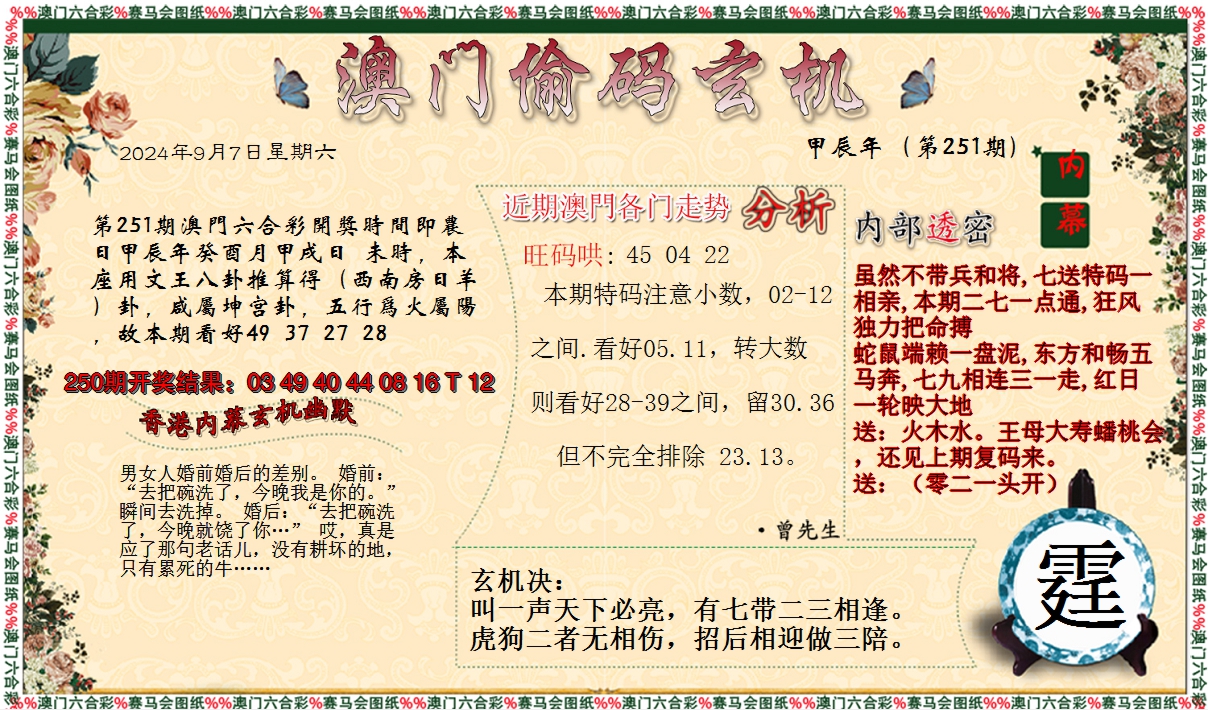 %%澳门六合彩%赛马会图纸%%澳门六合彩%赛马会图纸%%澳门六合彩%赛马会图纸%%澳门六合彩%赛马会图纸%%澳门六合彩%赛马会图纸%%澳门六合彩%赛马会图纸%%
澳门偷码玄机
2024年9月7日星期六
甲辰年（第251期）
内
幕
第251期澳門六合彩開獎時間即農
日甲辰年癸酉月甲戌日 未時，本
座用文王八卦推算得（西南房日羊
）卦，咸屬坤宫卦，五行爲火屬陽
，故本期看好49 37 27 28
250期开奖结果：03 49 40 44 08 16 T 12
香港内幕玄机幽默
男女人婚前婚后的差别。 婚前：
“去把碗洗了，今晚我是你的。”
瞬间去洗掉。 婚后：“去把碗洗
了，今晚就饶了你…” 哎，真是
应了那句老话儿，没有耕坏的地，
只有累死的牛……
近期澳門各门走势 分析
旺码哄: 45 04 22
本期特码注意小数，02-12
之间.看好05.11，转大数
则看好28-39之间，留30.36
但不完全排除 23.13。
·曾先生
内部透密
虽然不带兵和将,七送特码一
相亲,本期二七一点通,狂风
独力把命搏
蛇鼠端赖一盘泥,东方和畅五
马奔,七九相连三一走,红日
一轮映大地
送：火木水。王母大寿蟠桃会
，还见上期复码来。
送：（零二一头开）
玄机决：
叫一声天下必亮，有七带二三相逢。
虎狗二者无相伤，招后相迎做三陪。
霆
%%澳门六合彩%赛马会图纸%%澳门六合彩%赛马会图纸%%澳门六合彩%赛马会图纸%%澳门六合彩%赛马会图纸%%澳门六合彩%赛马会图纸%%澳门六合彩%赛马会图纸%%